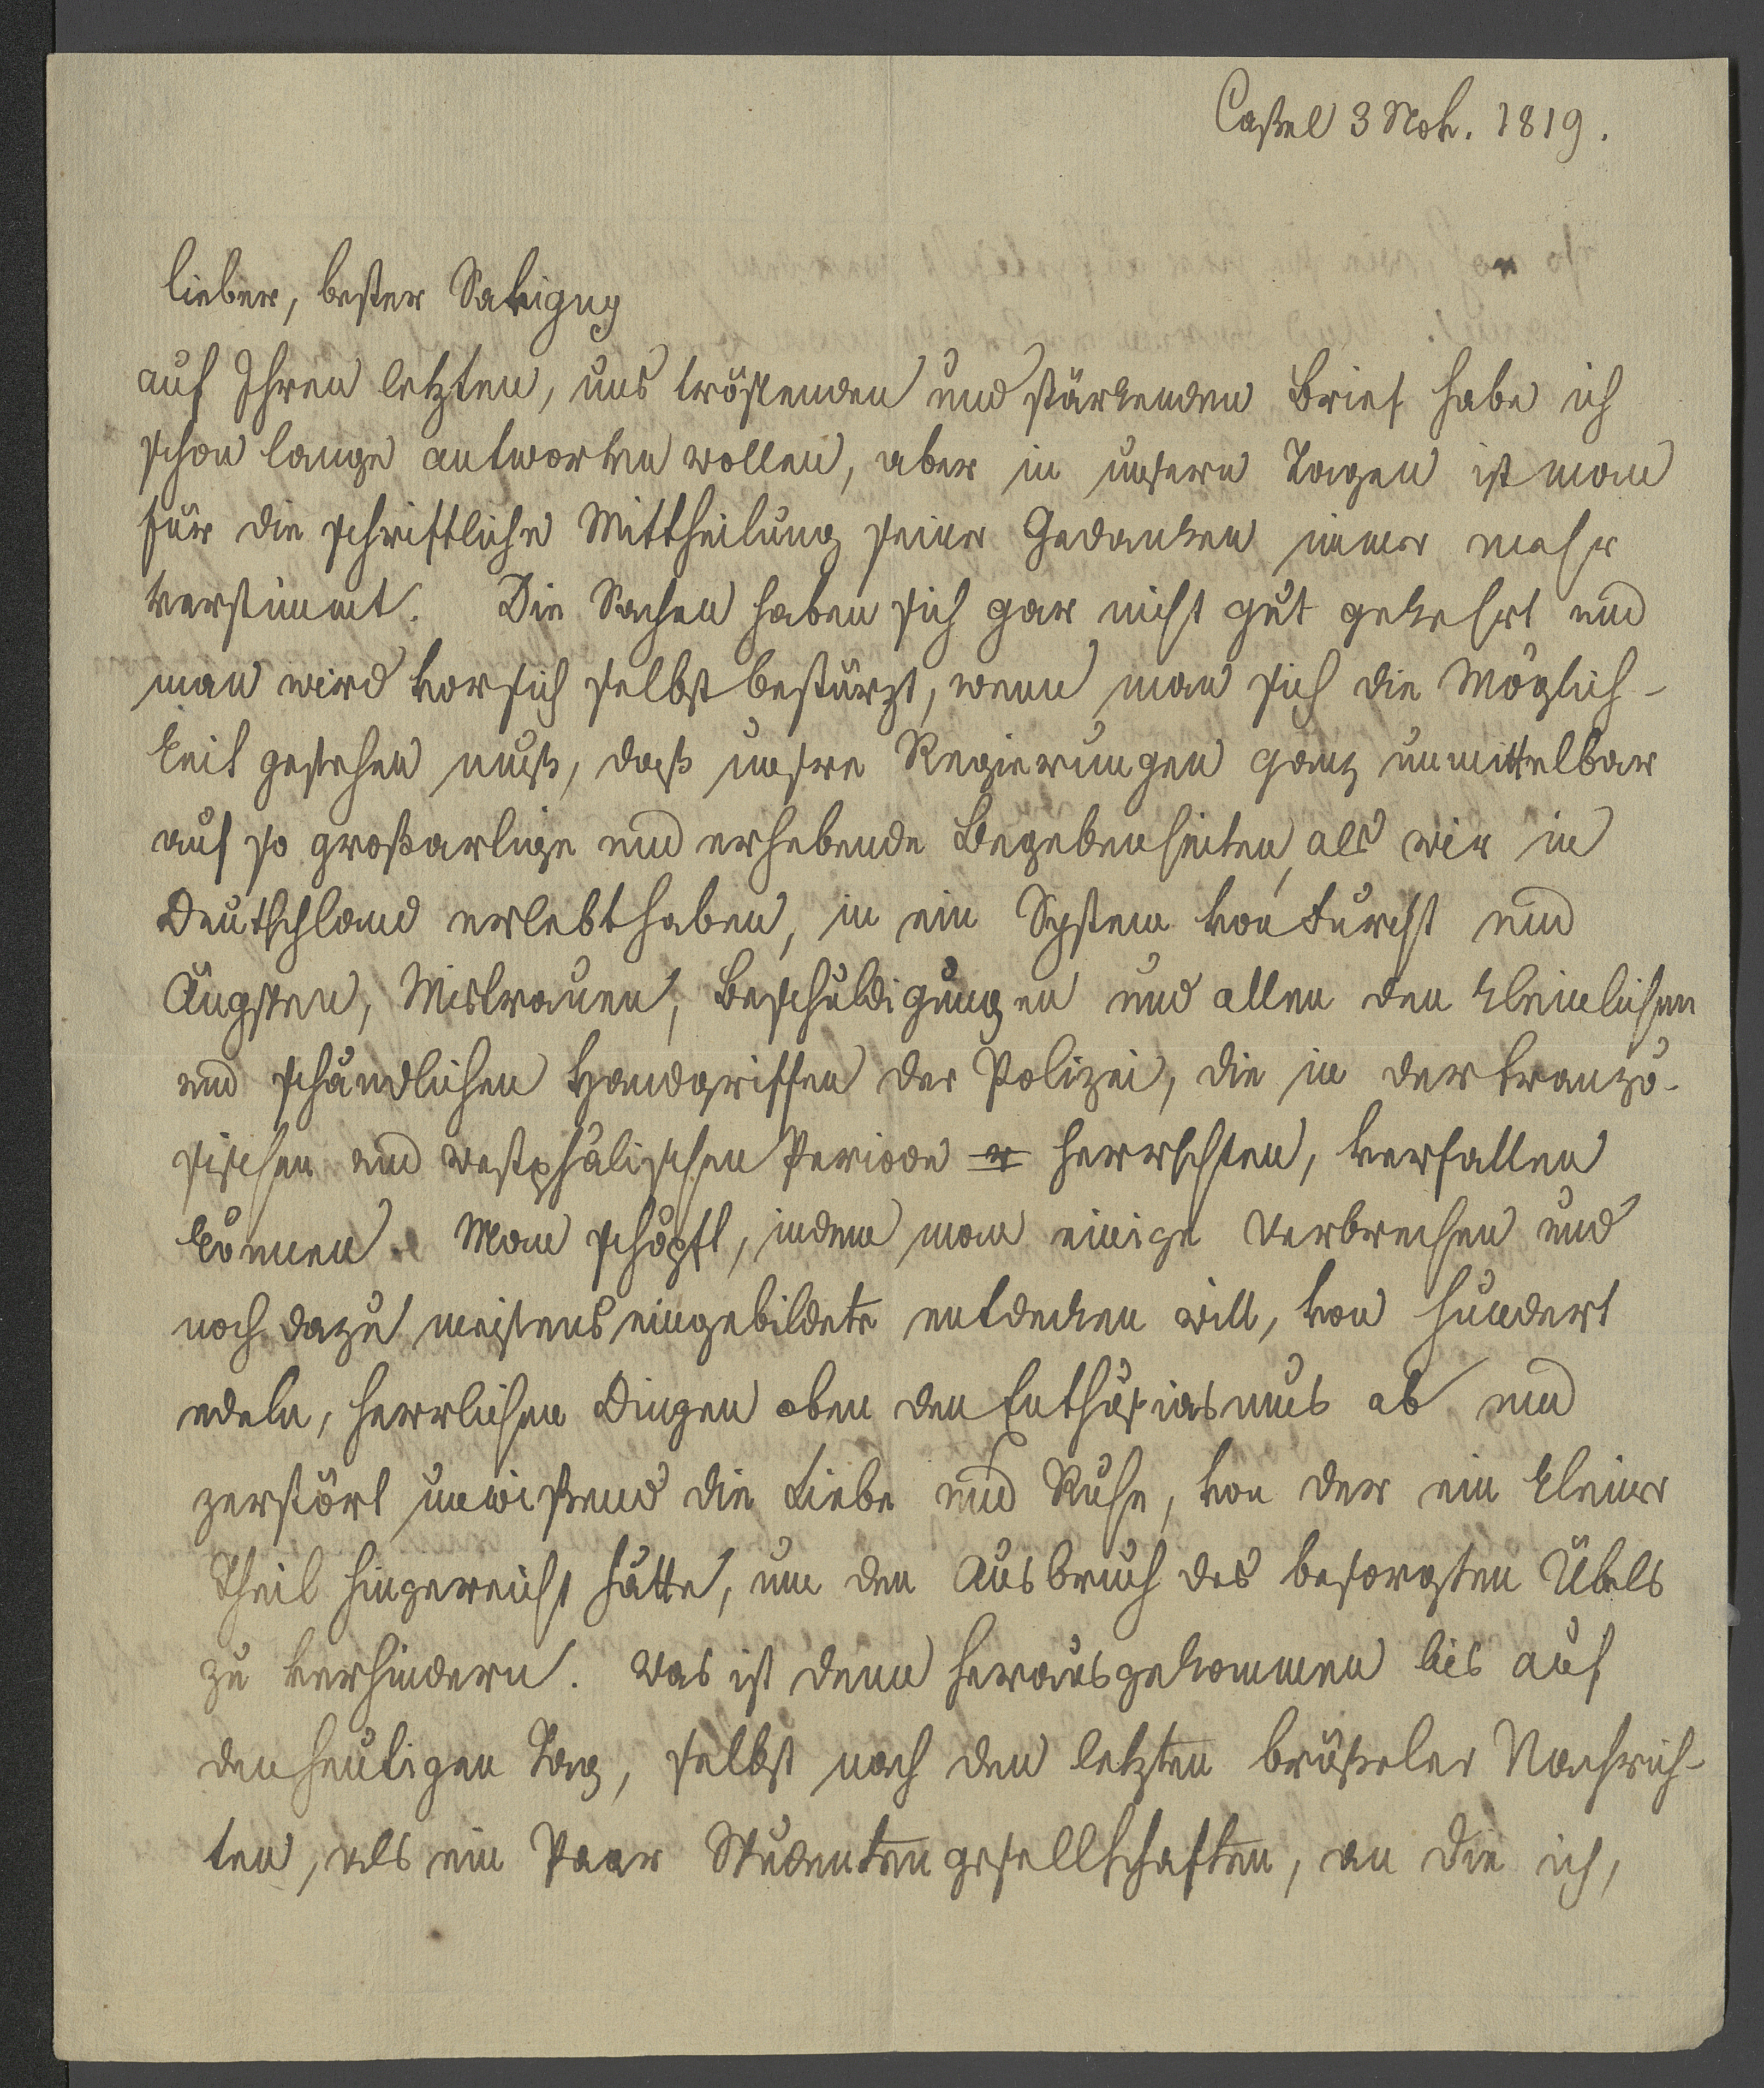 Caßel 3 Nov. 1819.
lieber, bester Savigny
auf Ihren letzten, uns tröstenden und stärkenden Brief habe ich
schon lange antworten wollen, aber in unsern Tagen ist man
für die schriftliche Mittheilung seiner Gedanken immer mehr
verstimmt. Die Sachen haben sich gar nicht gut gekehrt und
man wird vor sich selbst bestürzt, wenn man sich die Möglich-
keit gestehen muß, daß unsre Regierungen ganz unmittelbar
auf so großartige und erhebende Begebenheiten, als wir in
Deutschland erlebt haben, in ein System von Furcht und
Ängsten, Mistrauen, Beschuldigungen und allen den kleinlichen
und schändlichen Handgriffen der Polizei, die in der franzö-
sischen und westphälischen Periode herrschten, verfallen
können. Man schöpft, indem man einige Verbrechen und
noch dazu meistens eingebildete entdecken will, von hundert
edeln, herrlichen Dingen oben den Enthusiasmus ab und
zerstört unwißend die Liebe und Ruhe, von der ein kleiner
Theil hingereicht hätte, um den Ausbruch des besorgten Übels
zu verhindern. Was ist denn herausgekommen bis auf
den heutigen Tag, selbst nach den letzten brüßeler Nachrich-
ten, als ein Paar Studentengesellschaften, an die ich,